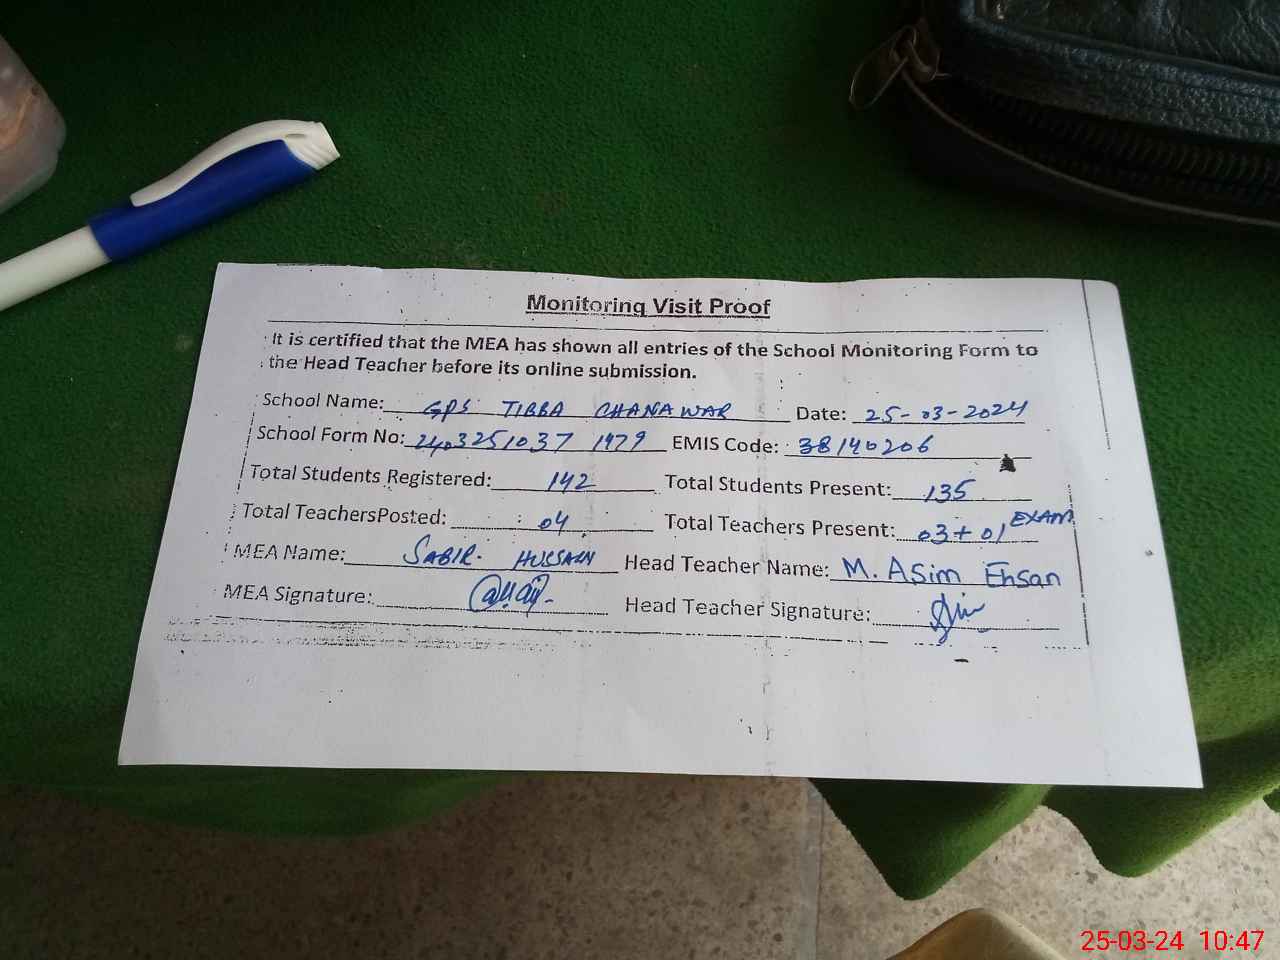 Monitoring Visit Proof
It is certified that the MEA has shown all entries of the School Monitoring Form to
the Head Teacher before its online submission.
School Name: GPS TIBBA CHANAWAR Date: 25-03-2024
School Form No: 2403251037 1479 EMIS Code: 38140206
Total Students Registered: 142 Total Students Present: 135
Total TeachersPosted: 04 Total Teachers Present: 03+01 EXAM
MEA Name: SABIR HUSSAIN Head Teacher Name: M. Asim Ehsan
MEA Signature: Head Teacher Signature:
25-03-24 10:47